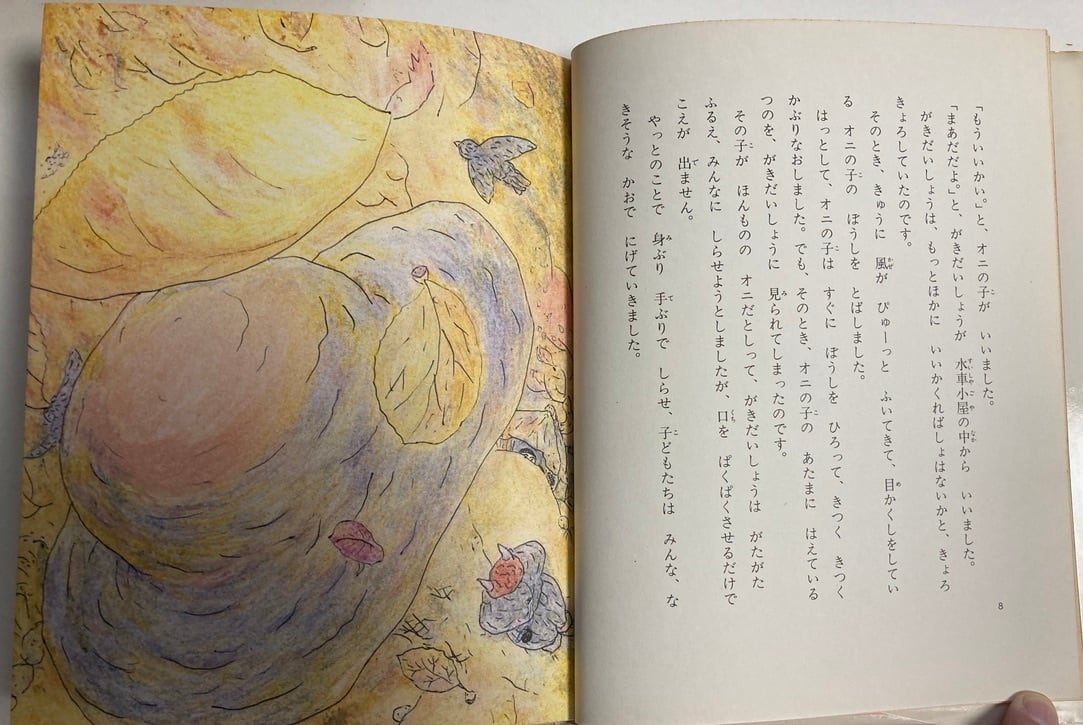 「もういいかい。」と、オニの子が　いいました。
「まあだだよ。」と、がきだいしょうが　水車小屋の中から　いいました。
がきだいしょうは、もっとほかに　いいかくればしょはないかと、きょろ
きょろしていたのです。
そのとき、きゅうに　風が　ぴゅーっと　ふいてきて、目かくしをしてい
る　オニの子の　ぼうしを　とばしました。
はっとして、オニの子は　すぐに　ぼうしを　ひろって、きつく　きつく
かぶりなおしました。でも、そのとき、オニの子の　あたまに　はえている
つのを、がきだいしょうに　見られてしまったのです。
その子が　ほんものの　オニだとしって、がきだいしょうは　がたがた
ふるえ、みんなに　しらせようとしましたが、口を　ぱくぱくさせるだけで
こえが　出ません。
やっとのことで　身ぶり　手ぶりで　しらせ、子どもたちは　みんな、な
きそうな　かおで　にげていきました。
8